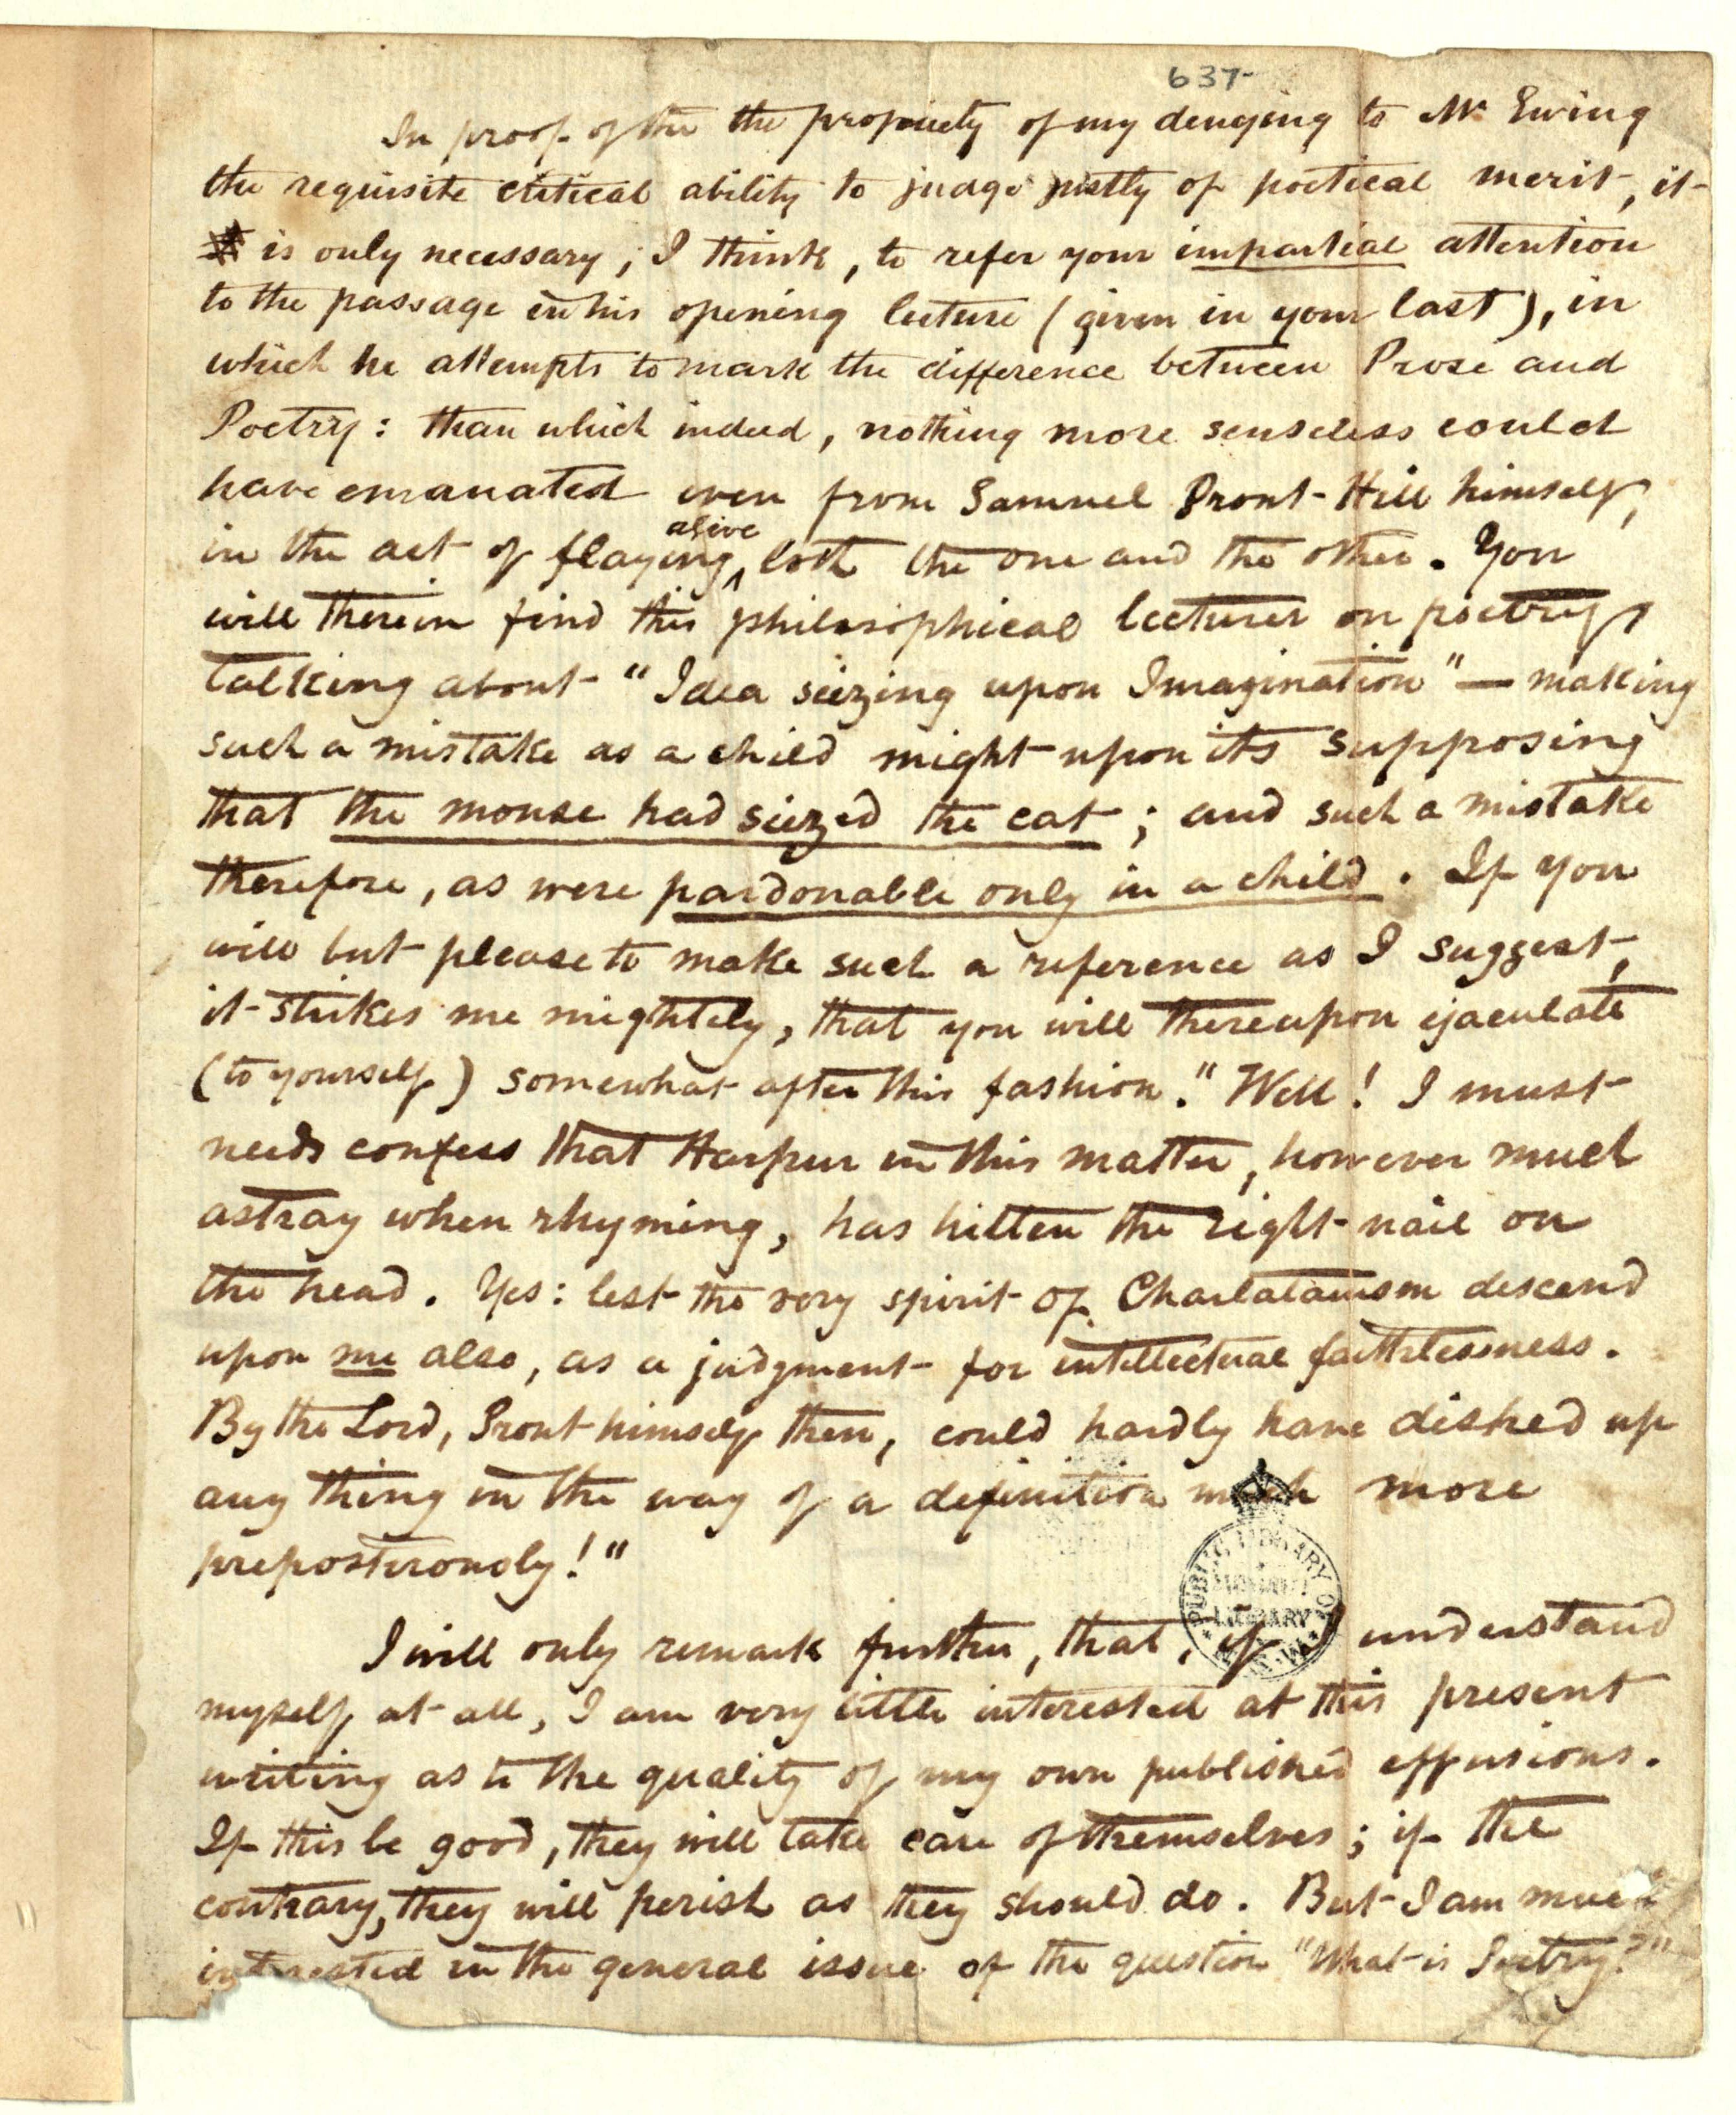 637-
In proof of the the propriety of my denying to Mr Ewing
the requisite critical ability to judge justly of poetical merit, it
is only necessary, I think, to refer your impartial attention
to the passage in his opening lecture (given in your last), in
which he attempts to mark the difference between Prose and
Poetry: than which indeed, nothing more senseless could
have emanated even from Samuel Prout-Hill himself,
alive
in the act of flaying ^ both the one and the other. You
will therein find this philosophical lecturer on poetry,
talking about "Idea seizing upon Imagination" — making
such a mistake as a child might upon its supposing
that the mouse had siezed the cat; and such a mistake
therefore, as were pardonable only in a child. If you
will but please to make such a reference as I suggest,
it strikes me mightily, that you will thereupon ejaculate
(to yourself) somewhat after this fashion. "Well! I must
needs confess that Harpur in this matter, however much
astray when rhyming, has hitten the right nail on
the head. Yes: lest the very spirit of Charlatanism descend
upon me also, as a judgment for intellectual faithlessness.
By the Lord, Prout himself then, could hardly have dished up
any thing in the way of a definition much more
preposterously!"
PUBLIC LIBRARY OF N.S.W.
MITCHELL
LIBRARY
I will only remark further, that, if I understand
myself at all, I am very little interested at this present
writing as to the quality of my own published effusions.
If this be good, they will take care of themselves; if the
contrary, they will perish as they should do. But I am much
interested in the general issue of the question "What is Poetry?"